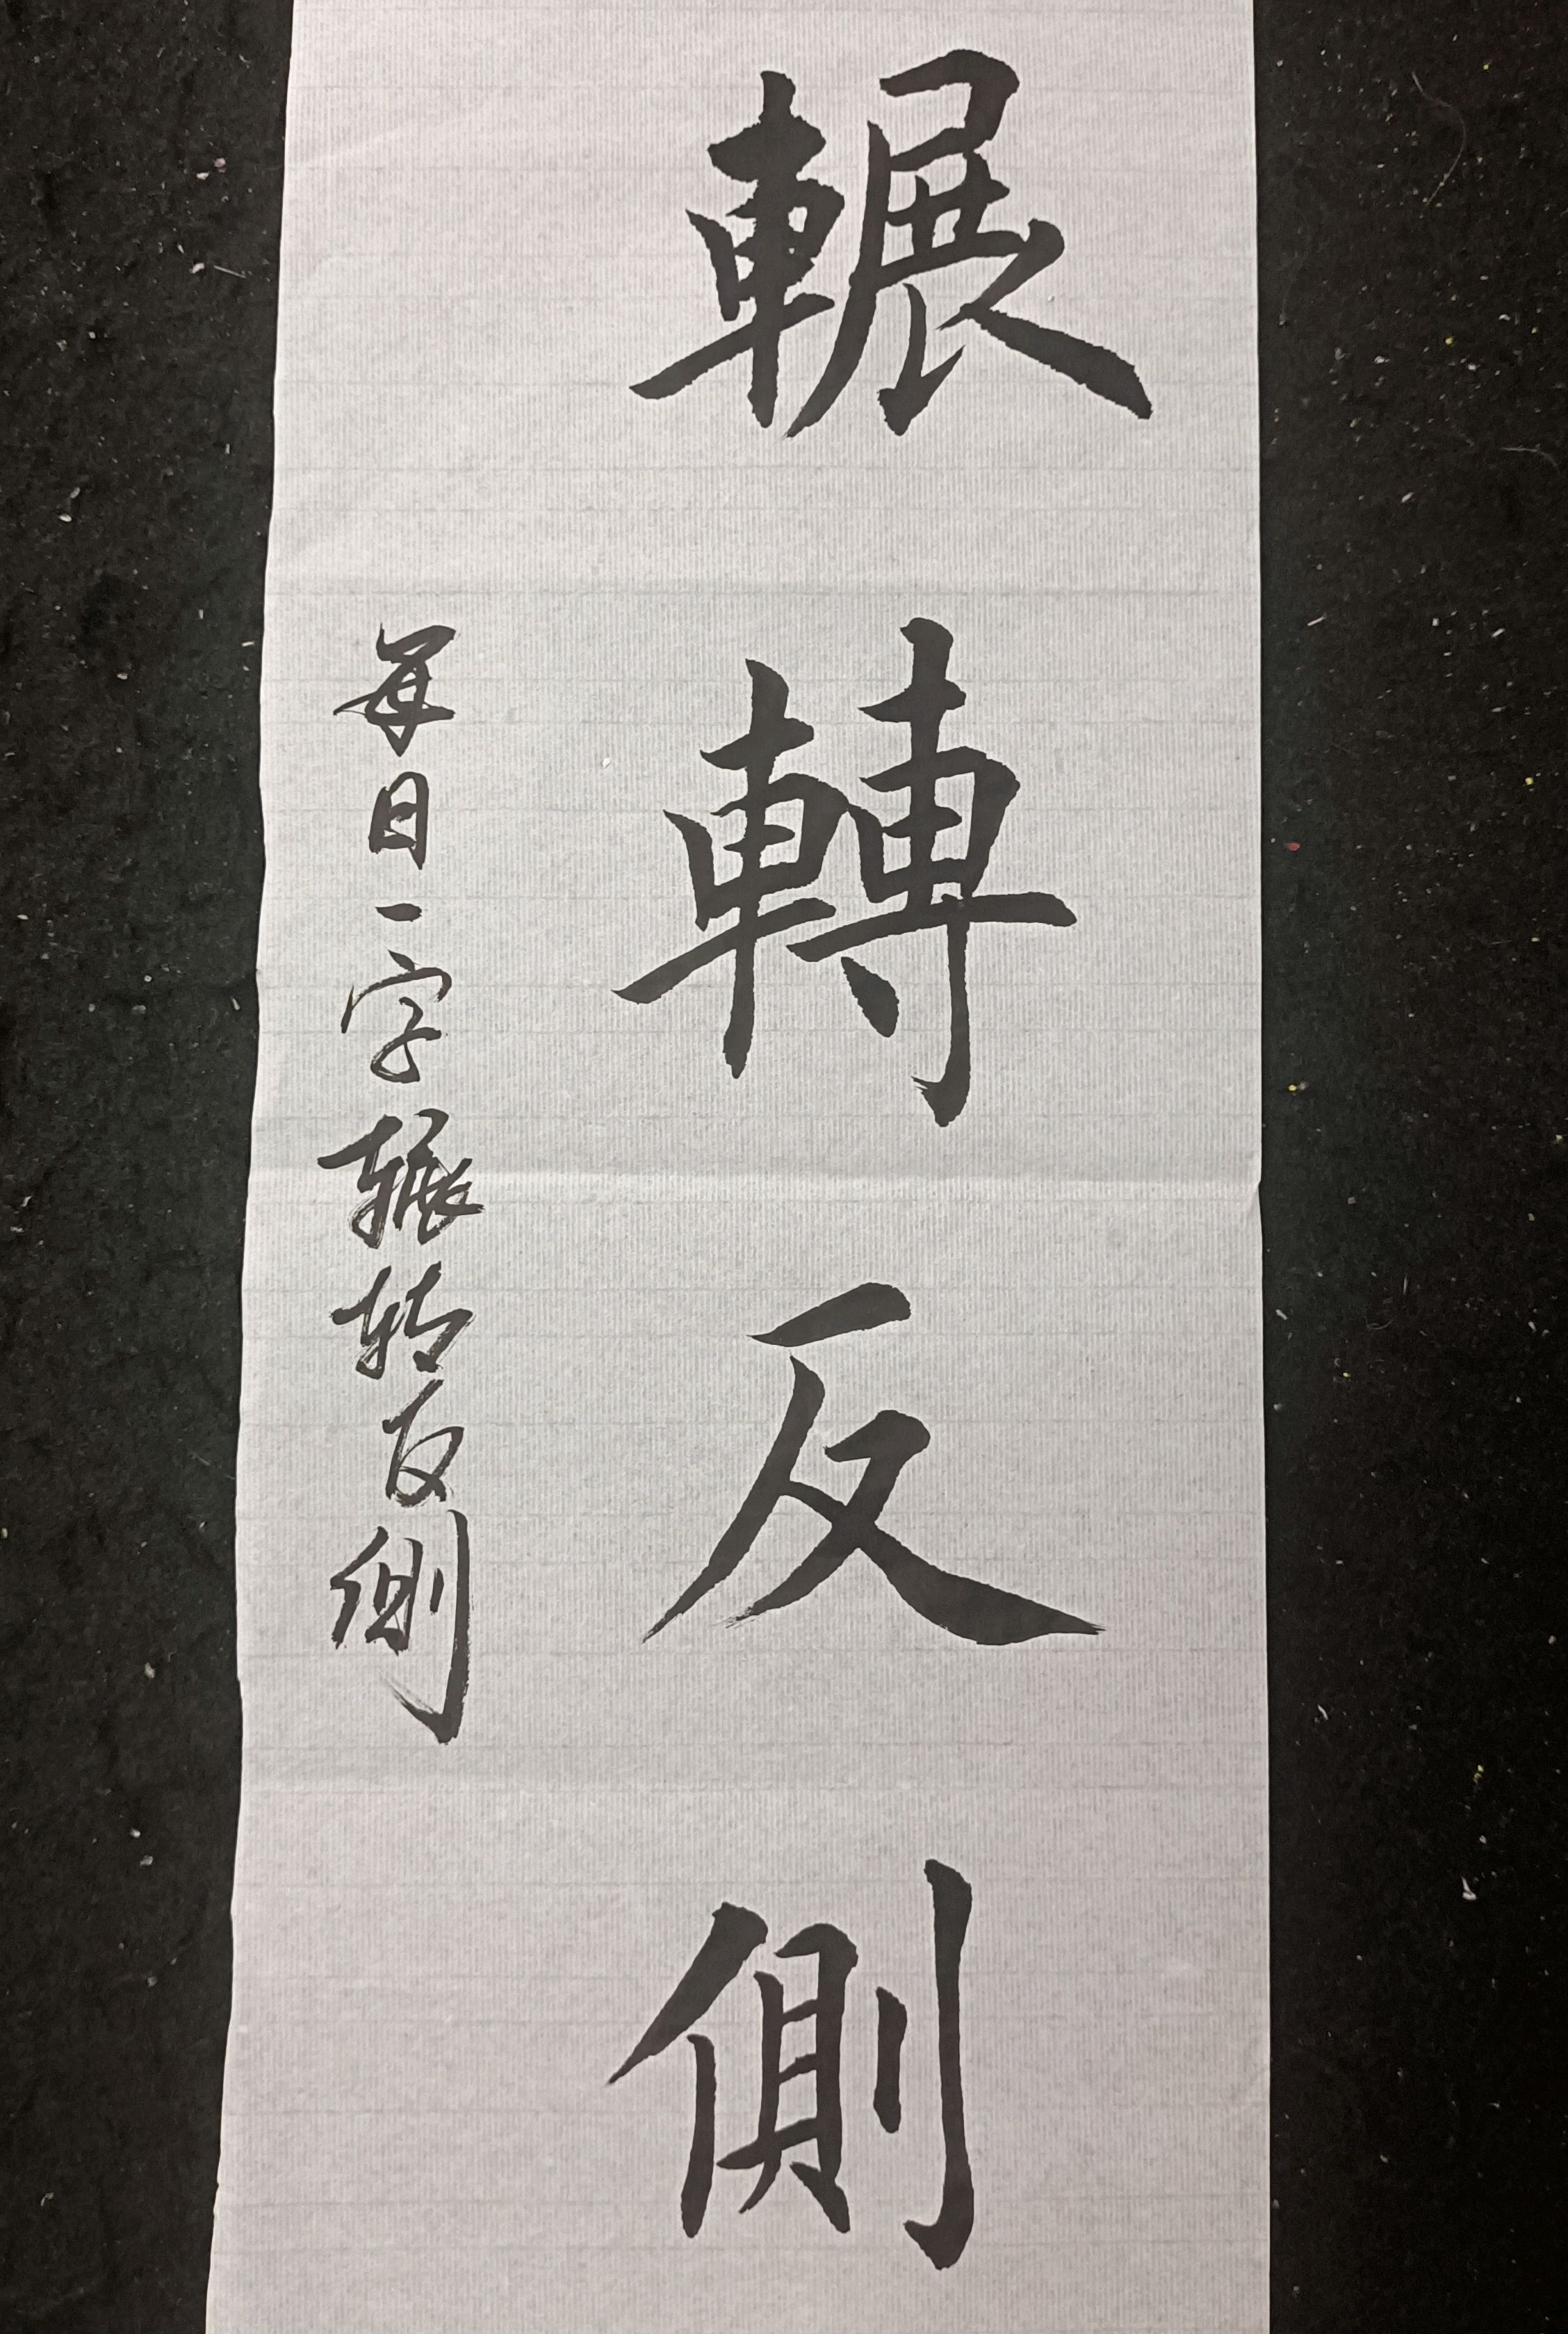 輾轉反側
每日一字辗转反側